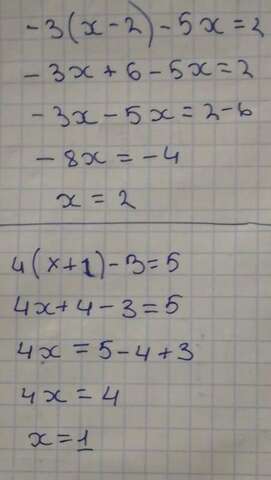 -3(x-2)-5x=2
-3x+6-5x=2
-3x-5x=2-6
-8x=-4
x=2
4(x+1)-3=5
4x+4-3=5
4x=5-4+3
4x=4
x=1